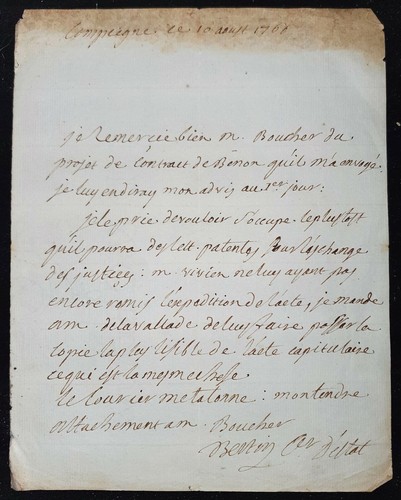 Compiegne ce 10 aoust 1760
je Remercie bien m. Boucher du
projet de Contract de Benon qu'il m'a envoyé
je luy en diray mon advis au 1er jour:
je le prie de vouloir s'occuper le plustost
qu'il pourra des lett. patentes pour l'eschange
des justices: m. vivien ne luy ayant pas
encore remis l'expedition de l'acte, je mande
a m. delavallade de luy faire passer la
copie la plus lisible de l'acte capitulaire
ce qui est la mesme chose
le Courier me talonne: mon tendre
attachement a m. Boucher
Bertin Cer d'estat